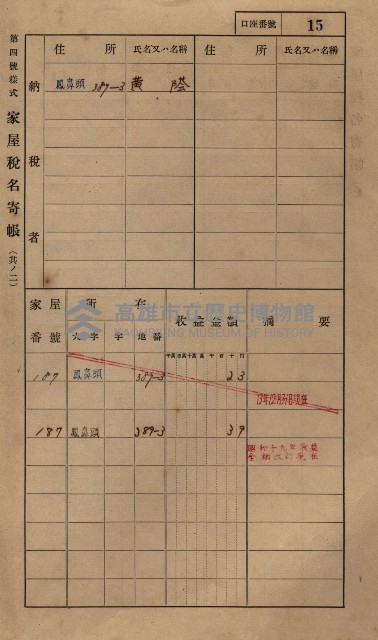 口座番號 15
第四號樣式 家屋稅名寄帳 (其ノ二)
納稅者
住所 氏名又ハ名稱 住所 氏名又ハ名稱
鳳鼻頭 387-3 黃
家屋番號 家屋所在 收益金額 摘要
大字 字 地番
十萬百萬十萬萬千百十円
187 鳳鼻頭 389-3 23
187 鳳鼻頭 389-3 39
高雄市立歷史博物館
KAOHSIUNG MUSEUM OF HISTORY